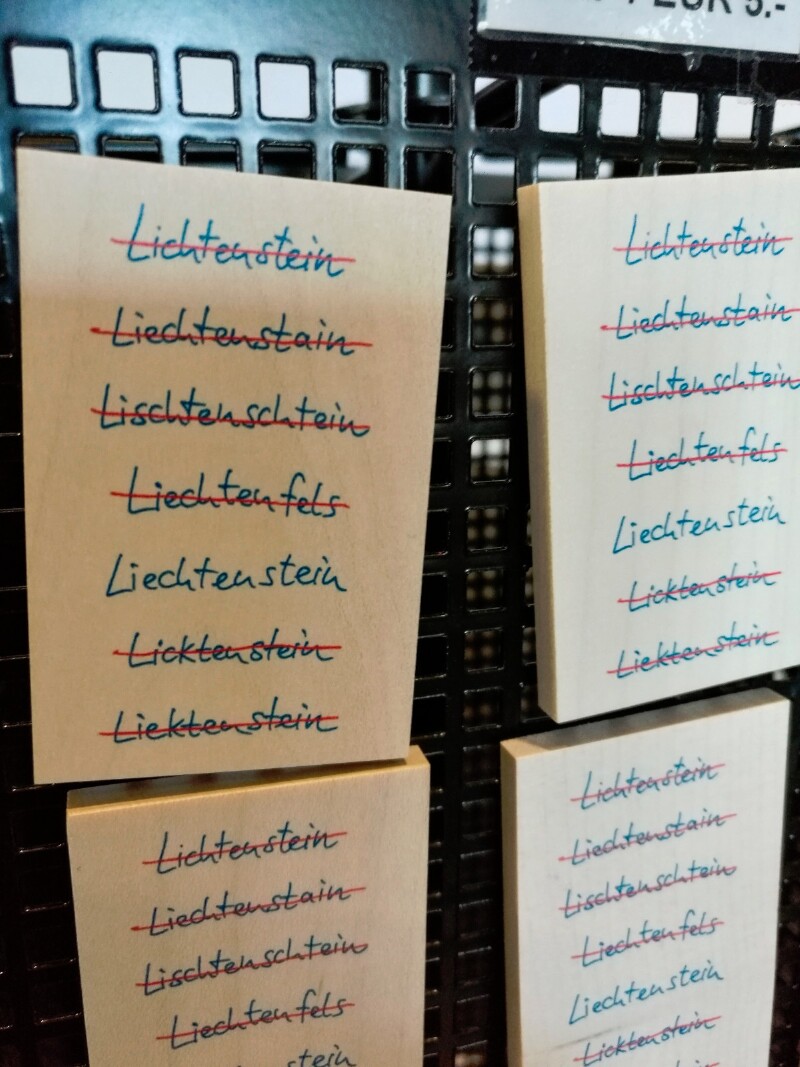 EUR 5.-
Lichtenstein
Liechtenstain
Lischtenschtein
Liechtenfels
Liechtenstein
Licktenstein
Liektenstein
Lichtenstein
Liechtenstain
Lischtenschtein
Liechtenfels
Liechtenstein
Licktenstein
Liektenstein
Lichtenstein
Liechtenstain
Lischtenschtein
Liechtenfels
stein
Lichtenstein
Liechtenstain
Lischtenschtein
Liechtenfels
Liechtenstein
Licktenstein